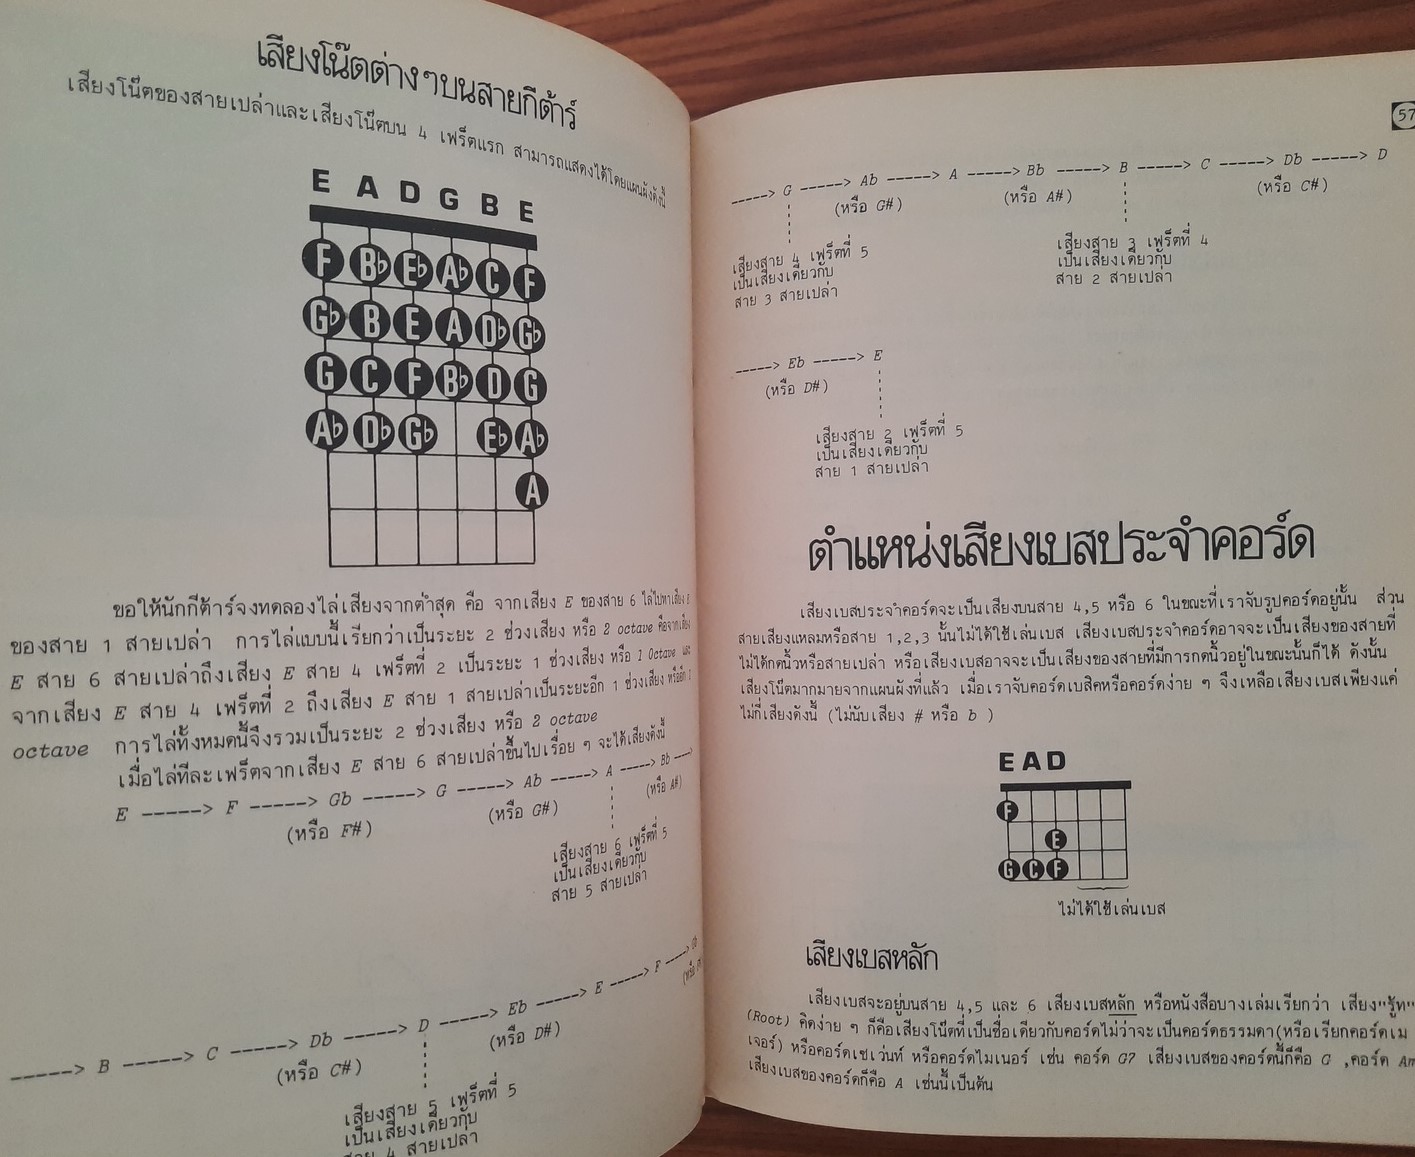 เสียงโน๊ตต่างๆบนสายกีต้าร์
เสียงโน๊ตของสายเปล่าและเสียงโน๊ตบน 4 เฟร็ตแรก สามารถแสดงได้โดยแผนผังดังนี้
E A D G B E
F Bb Eb Ab C F
Gb B E A Db Gb
G C F Bb D G
Ab Db Gb Eb Ab
A
ขอให้นักกีต้าร์จงทดลองไล่เสียงจากต่ำสุด คือ จากเสียง E ของสาย 6 ไล่ไปหาเสียง E
ของสาย 1 สายเปล่า การไล่แบบนี้เรียกว่าเป็นระยะ 2 ช่วงเสียง หรือ 2 octave คือจากเสียง
E สาย 6 สายเปล่าถึงเสียง E สาย 4 เฟร็ตที่ 2 เป็นระยะ 1 ช่วงเสียง หรือ 1 Octave และ
จากเสียง E สาย 4 เฟร็ตที่ 2 ถึงเสียง E สาย 1 สายเปล่าเป็นระยะอีก 1 ช่วงเสียง หรืออีก 1
octave การไล่ทั้งหมดนี้จึงรวมเป็นระยะ 2 ช่วงเสียง หรือ 2 octave
เมื่อไล่ทีละเฟร็ตจากเสียง E สาย 6 สายเปล่าขึ้นไปเรื่อย ๆ จะได้เสียงดังนี้
E -----> F -----> Gb -----> G -----> Ab -----> A -----> Bb ----->
(หรือ F#) (หรือ G#) (หรือ A#)
เสียงสาย 6 เฟร็ตที่ 5
เป็นเสียงเดียวกับ
สาย 5 สายเปล่า
-----> B -----> C -----> Db -----> D -----> Eb -----> E -----> F -----> Gb
(หรือ C#) (หรือ D#) (หรือ
เสียงสาย 5 เฟร็ตที่ 5
เป็นเสียงเดียวกับ
สาย 4 สายเปล่า
57
-----> G -----> Ab -----> A -----> Bb -----> B -----> C -----> Db -----> D
(หรือ G#) (หรือ A#) (หรือ C#)
เสียงสาย 4 เฟร็ตที่ 5
เป็นเสียงเดียวกับ
สาย 3 สายเปล่า
เสียงสาย 3 เฟร็ตที่ 4
เป็นเสียงเดียวกับ
สาย 2 สายเปล่า
-----> Eb -----> E
(หรือ D#)
เสียงสาย 2 เฟร็ตที่ 5
เป็นเสียงเดียวกับ
สาย 1 สายเปล่า
ตำแหน่งเสียงเบสประจำคอร์ด
เสียงเบสประจำคอร์ดจะเป็นเสียงบนสาย 4,5 หรือ 6 ในขณะที่เราจับรูปคอร์ดอยู่นั้น ส่วน
สายเสียงแหลมหรือสาย 1,2,3 นั้นไม่ได้ใช้เล่นเบส เสียงเบสประจำคอร์ดอาจจะเป็นเสียงของสายที่
ไม่ได้กดนิ้วหรือสายเปล่า หรือเสียงเบสอาจจะเป็นเสียงของสายที่มีการกดนิ้วอยู่ในขณะนั้นก็ได้ ดังนั้น
เสียงโน๊ตมากมายจากแผนผังที่แล้ว เมื่อเราจับคอร์ดเบสิคหรือคอร์ดง่าย ๆ จึงเหลือเสียงเบสเพียงแค่
ไม่กี่เสียงดังนี้ (ไม่นับเสียง # หรือ b )
E A D
F
E
G C F
ไม่ได้ใช้เล่นเบส
เสียงเบสหลัก
เสียงเบสจะอยู่บนสาย 4,5 และ 6 เสียงเบสหลัก หรือหนังสือบางเล่มเรียกว่า เสียง"รู้ท"
(Root) คิดง่าย ๆ ก็คือเสียงโน๊ตที่เป็นชื่อเดียวกับคอร์ดไม่ว่าจะเป็นคอร์ดธรรมดา(หรือเรียกคอร์ดเม
เจอร์) หรือคอร์ดเซเว่นท์ หรือคอร์ดไมเนอร์ เช่น คอร์ด G7 เสียงเบสของคอร์ดนี้ก็คือ G ,คอร์ด Am
เสียงเบสของคอร์ดก็คือ A เช่นนี้เป็นต้น